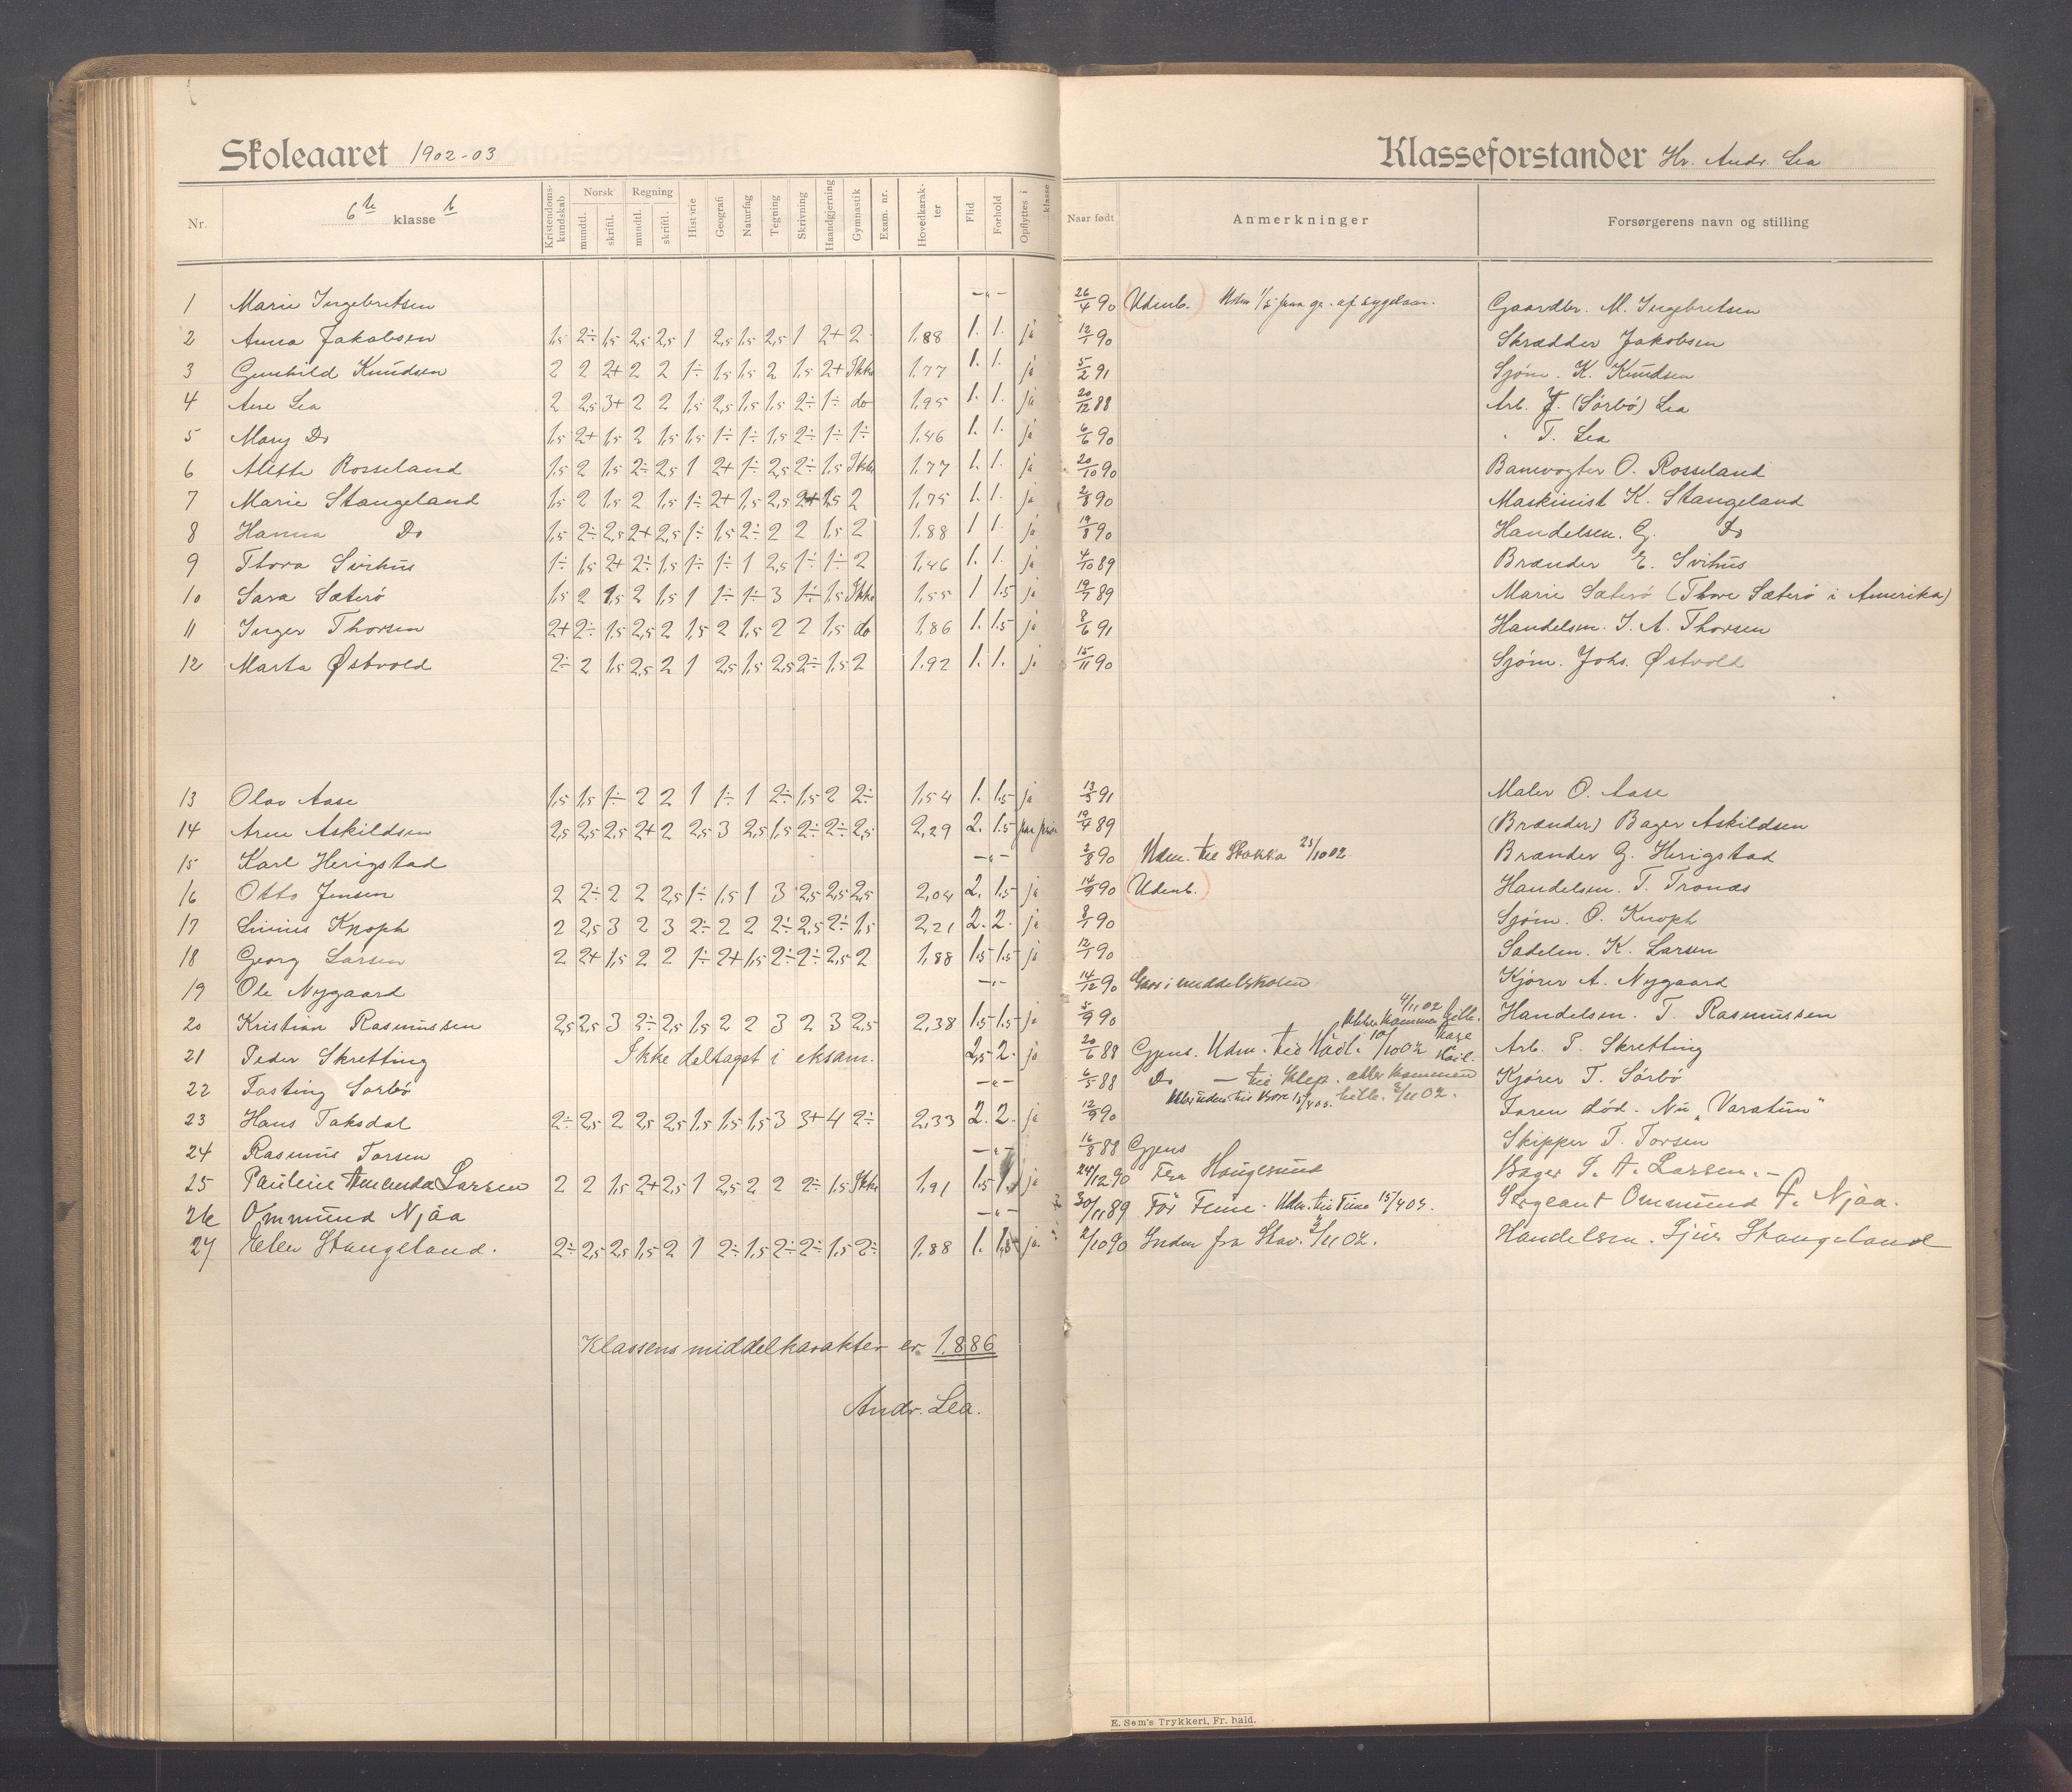 Skoleaaret 1902-03
Klasseforstander Hr. Andr. Lea
Nr. 6te klasse b Kristendoms-kundskab Norsk mundtl. skriftl. Regning mundtl. skriftl. Historie Geografi Naturfag Tegning Skrivning Haandgjerning Gymnastik Exam. nr. Hovedkarakter Flid Forhold Opflyttes i klasse Naar født Anmerkninger Forsørgerens navn og stilling
1 Marie Ingebretsen —"— 26/4 90 (Udenb.) Gaardbr. M. Ingebretsen
2 Anna Jakobsen 1,5 2÷ 1,5 2,5 2,5 1 2,5 1,5 2,5 1 2+ 2 1,88 1. 1. ja 12/1 90 Skrædder Jakobsen
3 Gunhild Knudsen 2 2 2+ 2 2 1÷ 1,5 1,5 2 1,5 2+ Ikke 1,77 1. 1. ja 5/2 91 Sjøm. K. Knudsen
4 Ane Lea 2 2,5 3+ 2 2 1,5 2,5 1,5 1,5 2÷ 1÷ do 1,95 1. 1. ja 20/12 88 Arb. T. (Sørbø) Lea
5 Mary Do 1,5 2+ 1,5 2 1,5 1,5 1÷ 1÷ 1,5 2÷ 1÷ 1÷ 1,46 1. 1. ja 6/6 90 " T. Lea
6 Alette Rosseland 1,5 2 1,5 2÷ 2,5 1 2+ 1÷ 2,5 2÷ 1,5 Ikke 1,77 1. 1. ja 20/10 90 Banevogter O. Rosseland
7 Marie Stangeland 1,5 2 1,5 2 1,5 1÷ 2+ 1,5 2,5 2+ 1,5 2 1,75 1. 1. ja 2/8 90 Maskinist K. Stangeland
8 Hanna Do 1,5 2÷ 2,5 2+ 2,5 1÷ 1,5 2÷ 2 2 1,5 2 1,88 1 1. ja 19/8 90 Handelsm. G. Do
9 Thora Svihus 1÷ 1,5 2+ 2÷ 1,5 1÷ 1÷ 1 2,5 1÷ 1÷ 2 1,46 1. 1. ja 4/10 89 Brænder E. Svihus
10 Sara Sæterø 1,5 2 1,5 2 1,5 1 1÷ 1÷ 3 1÷ 1,5 Ikke 1,55 1 1.5 ja 19/7 89 Marie Sæterø (Thore Sæterø i Amerika)
11 Inger Thorsen 2+ 2÷ 1,5 2,5 2 1,5 2 1,5 2 2 1,5 do 1,86 1. 1.5 ja 8/6 91 Handelsm. I. A. Thorsen
12 Marta Østvold 2÷ 2 1,5 2,5 2 1 2,5 1,5 2,5 2÷ 1,5 2 1,92 1. 1. ja 15/11 90 Sjøm. Johs. Østvold
13 Olav Aase 1,5 1,5 1÷ 2 2 1 1÷ 1 2÷ 1,5 2 2÷ 1,54 1. 1.5 ja 13/3 91 Maler O. Aase
14 Arne Askildsen 2,5 2,5 2,5 2+ 2 2,5 3 2,5 1,5 2÷ 2÷ 2,5 2,29 2. 1.5 19/4 89 (Brænder) Bager Askildsen
15 Karl Herigstad —"— 2/8 90 Udm. til Stokka 23/10 02. Brænder G. Herigstad
16 Otto Jensen 2 2÷ 2 2 2,5 1÷ 1,5 1 3 2,5 2,5 2,5 2,04 2. 1.5 ja 14/9 90 (Udenb.) Handelsm. T. Tronæs
17 Sivius Knoph 2 2,5 3 2 3 2÷ 2 2 2÷ 2,5 2÷ 1,5 2,21 2. 2. ja 8/1 90 Sjøm. O. Knoph
18 Georg Larsen 2 2+ 1,5 2 2 1÷ 2+ 1,5 2÷ 2÷ 2,5 2 1,88 1.5 1.5 ja 12/1 90 Sadelm. K. Larsen
19 Ole Nygaard —"— 14/12 90 Gaar i middelskolen Kjører A. Nygaard
20 Kristian Rasmussen 2,5 2,5 3 2÷ 2,5 1,5 2 2 3 2 3 2,5 2,38 1.5 1.5 ja 5/9 90 Handelsm. T. Rasmussen
4/11 02 Atter kommen tilb.
21 Peder Skretting Ikke deltaget i eksam. 2,5 2. ja 20/6 88 Gjens. Udm. til 10/10 02 Arb. P. Skretting
22 Tasting Sørbø —"— 6/5 88 Do — til Klep. atter kommen tilb. 3/11 02. Kjører T. Sørbø
Atter udm. til Bore 15/4 03.
23 Hans Taksdal 2÷ 2,5 2 2,5 2,5 1,5 1,5 1,5 3 3+ 4 2÷ 2,33 2. 2. ja 12/9 90 Faren død. Nu „Varatun"
24 Rasmus Torsen —"— 16/8 88 Gjens Skipper T. Torsen
25 Pauline Amanda Larsen 2 2 1,5 2+ 2,5 1 2,5 2 2 2÷ 1,5 Ikke 1,91 1.5 1. ja 24/12 90 Fra Haugesund Bager P. A. Larsen.
26 Ommund Njaa —"— 30/11 89 Før Time. Udm. til Time 15/4 03. Sergeant Ommund P. Njaa.
27 Ellen Stangeland. 2÷ 2,5 2,5 1,5 2 1 2÷ 1,5 2÷ 2÷ 1,5 2÷ 1,88 1. 1,5 ja. 2/10 90 Indm fra Stav. 3/11 02. Handelsm. Sjur Stangeland
Klassens middelkarakter er 1.886
Andr. Lea.
E. Sem's Trykkeri, Fr. hald.